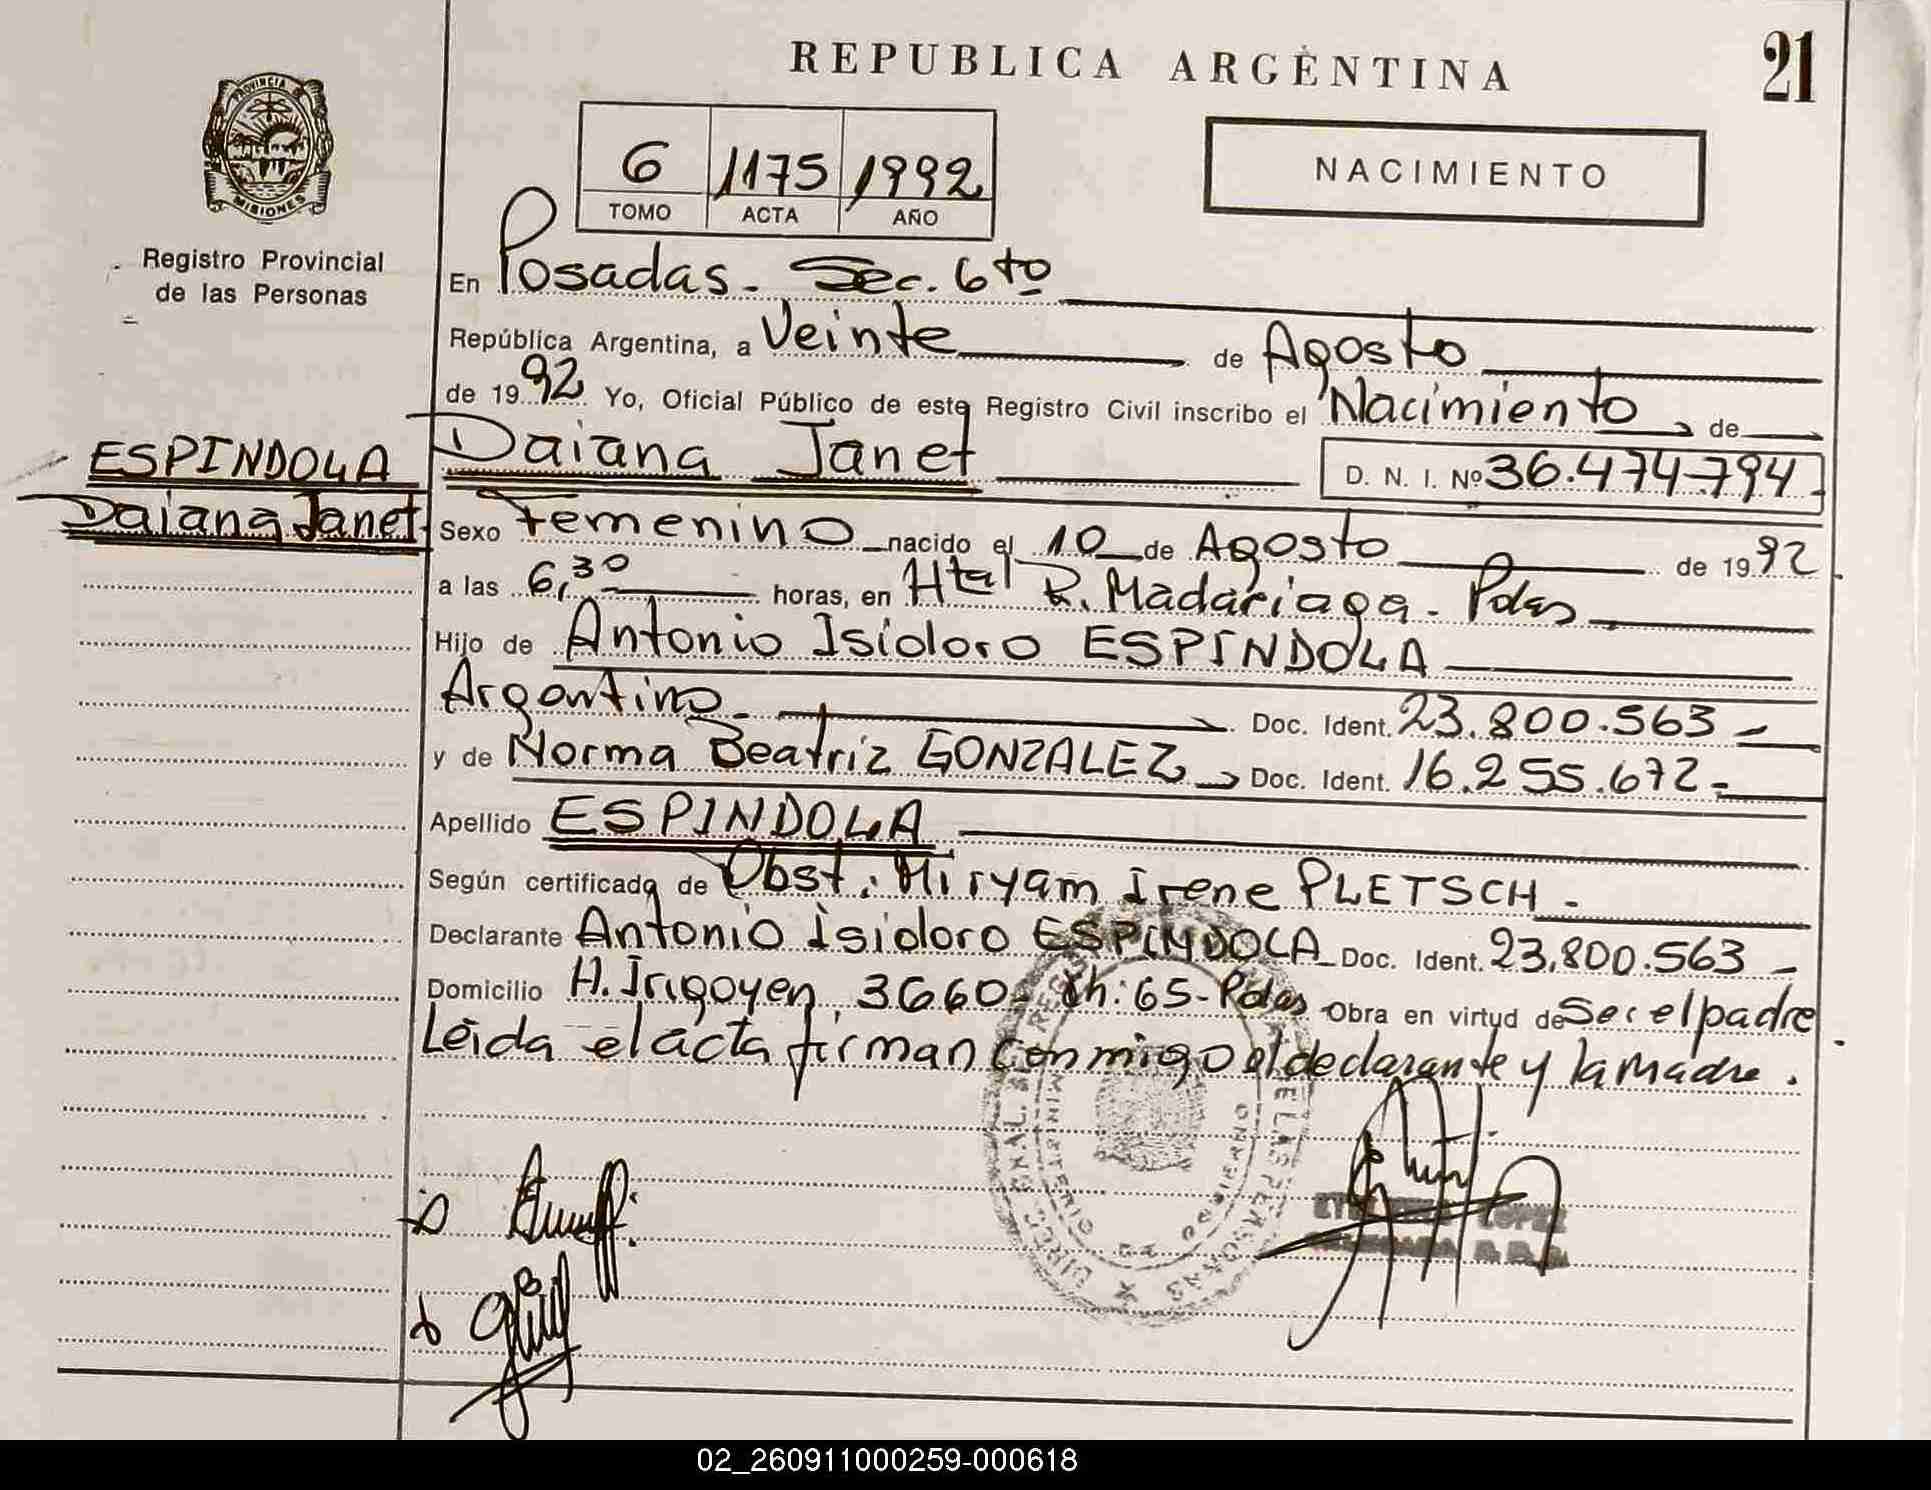 REPUBLICA ARGENTINA
21
PROVINCIA D
MISIONES
Registro Provincial
de las Personas
6 1175 1992
TOMO ACTA AÑO
NACIMIENTO
En Posadas. Sec. 6to
República Argentina, a Veinte de Agosto
de 1992 Yo, Oficial Público de este Registro Civil inscribo el Nacimiento de
ESPINDOLA
Daiana Janet
Daiana Janet D. N. I. Nº 36.474.794
Sexo Femenino nacido el 10 de Agosto de 1992
a las 6,30 horas, en Htal R. Madariaga - Pdas
Hijo de Antonio Isidoro ESPINDOLA
Argentino Doc. Ident. 23.800.563
y de Norma Beatriz GONZALEZ Doc. Ident. 16.255.672
Apellido ESPINDOLA
Según certificado de Obst. Miryam Irene PLETSCH
Declarante Antonio Isidoro ESPINDOLA Doc. Ident. 23.800.563
Domicilio H. Irigoyen 3660 - Ch: 65 - Pdas Obra en virtud de Ser el padre
Leida el acta firman conmigo el declarante y la madre.
DE LAS PERSONAS
MINISTERIO DE GOBIERNO
LOPEZ
02_260911000259-000618